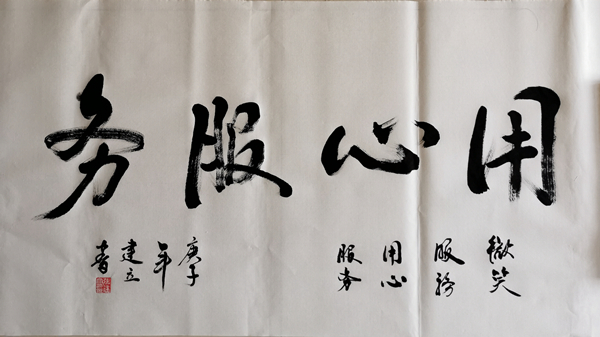 用心服务
微笑
服務
用心
服务
庚子
年
建立
書